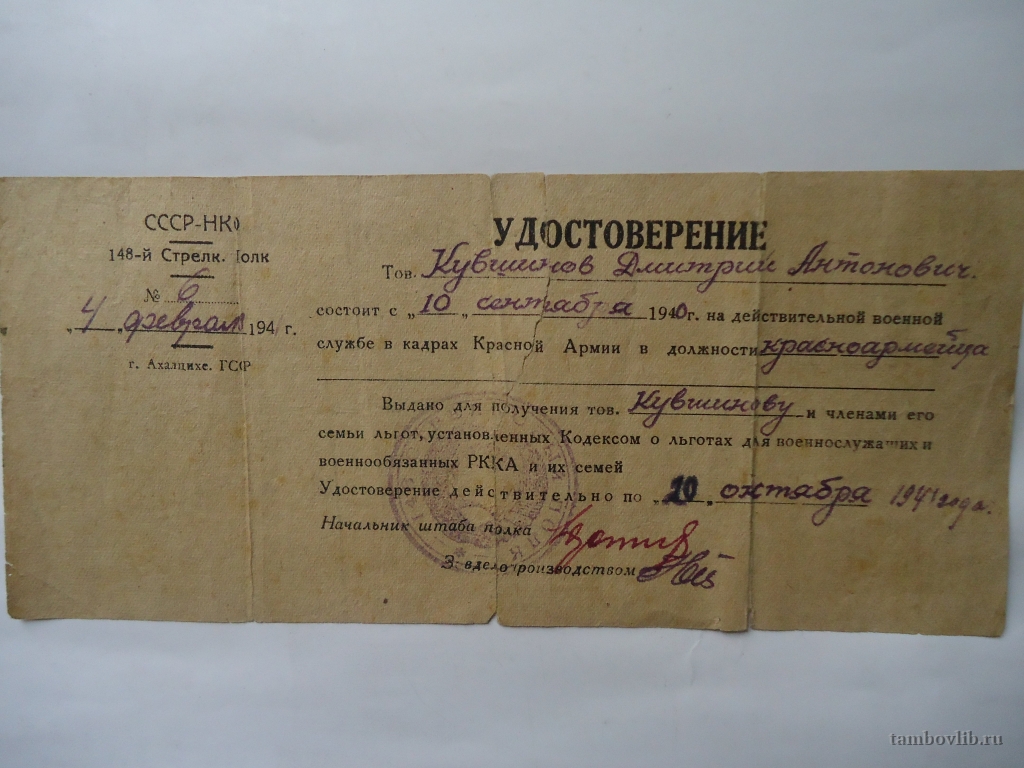 СССР-НКО
148-й Стрелк. Полк
№ 6
„4„ февраля 1941 г.
г. Ахалцихе. ГССР
УДОСТОВЕРЕНИЕ
Тов. Кувшинов Дмитрий Антонович.
состоит с „10„ сентября 1940 г. на действительной военной
службе в кадрах Красной Армии в должности красноармейца
Выдано для получения тов. Кувшинову и членами его
семьи льгот, установленных Кодексом о льготах для военнослужащих и
военнообязанных РККА и их семей
Удостоверение действительно по „10„ октября 1941 года.
Начальник штаба полка
Зав делопроизводством
tambovlib.ru